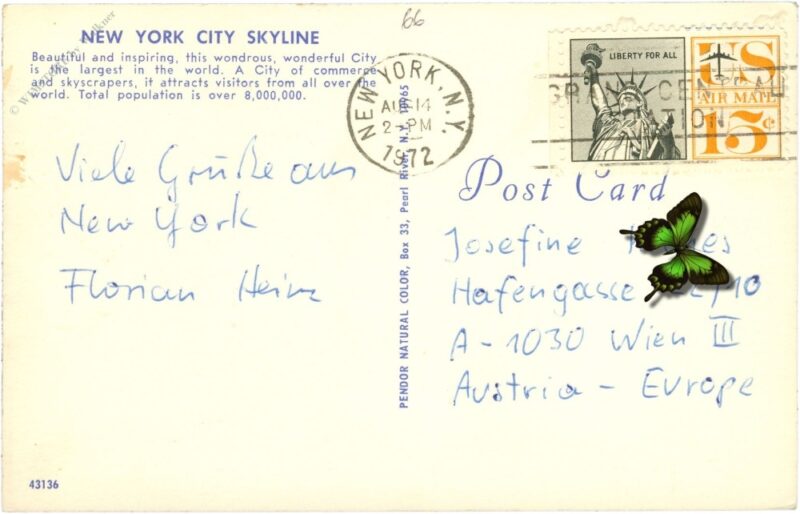 66
NEW YORK CITY SKYLINE
Beautiful and inspiring, this wondrous, wonderful City
is the largest in the world. A City of commerce
and skyscrapers, it attracts visitors from all over the
world. Total population is over 8,000,000.
NEW YORK, N.Y.
AUG 14
2-PM
1972
LIBERTY FOR ALL
US
AIR MAIL
15¢
GRAND CENTRAL
STATION
Viele Grüße aus
New York
Florian Heinz
PENDOR NATURAL COLOR, Box 33, Pearl River, N.Y. 10965
Post Card
Josefine
Hafengasse /10
A-1030 Wien III
Austria - Europe
43136